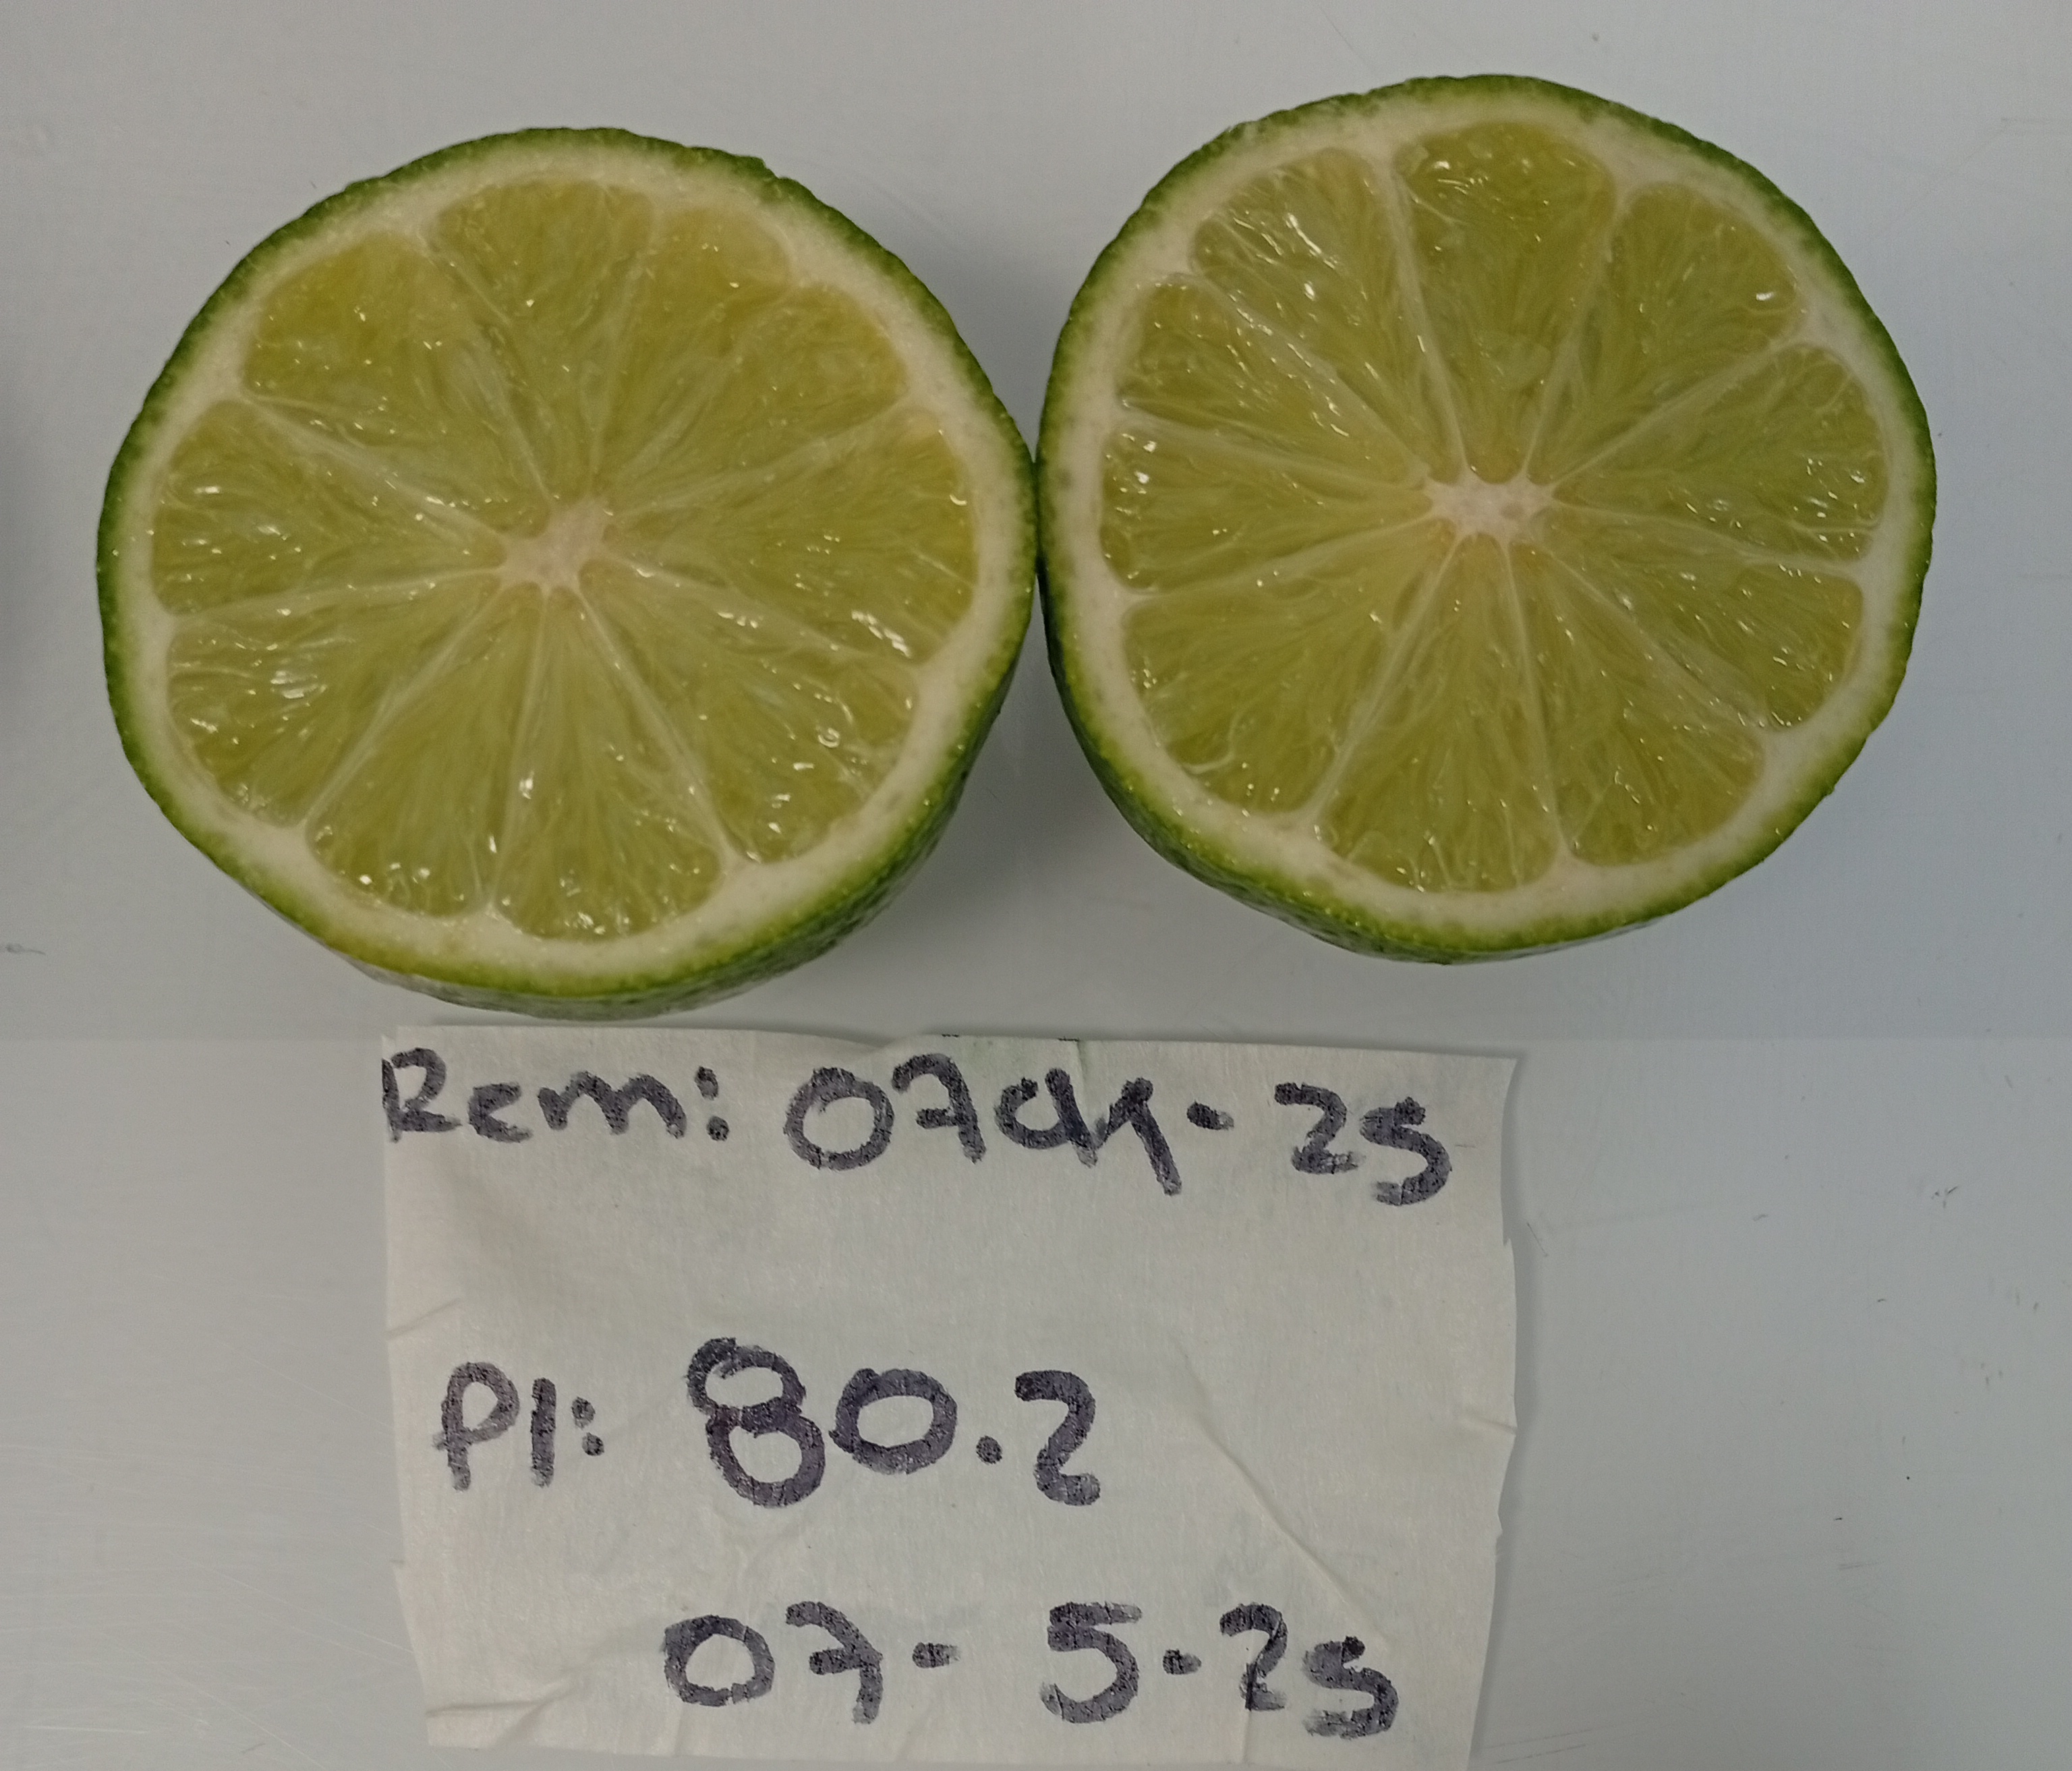 Rem: 0794-25
PI: 80.2
07-5-25